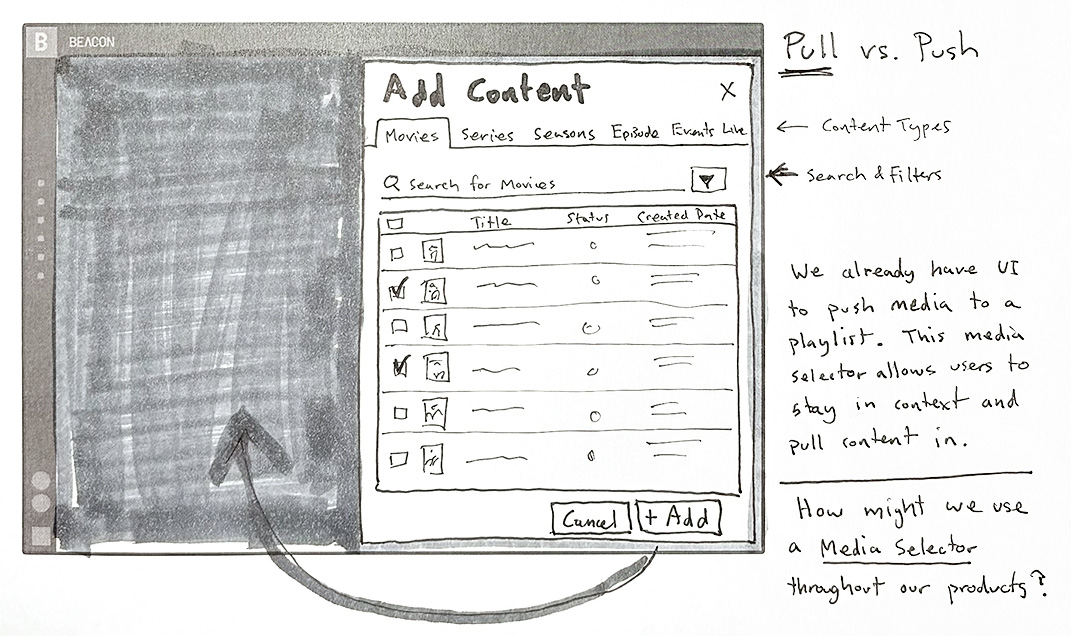 B BEACON
Add Content X
Movies Series Seasons Episode Events Live
Search for Movies
Title Status Created Date
Cancel + Add
Pull vs. Push
← Content Types
← Search & Filters
We already have UI
to push media to a
playlist. This media
selector allows users to
stay in context and
pull content in.
How might we use
a Media Selector
throughout our products?